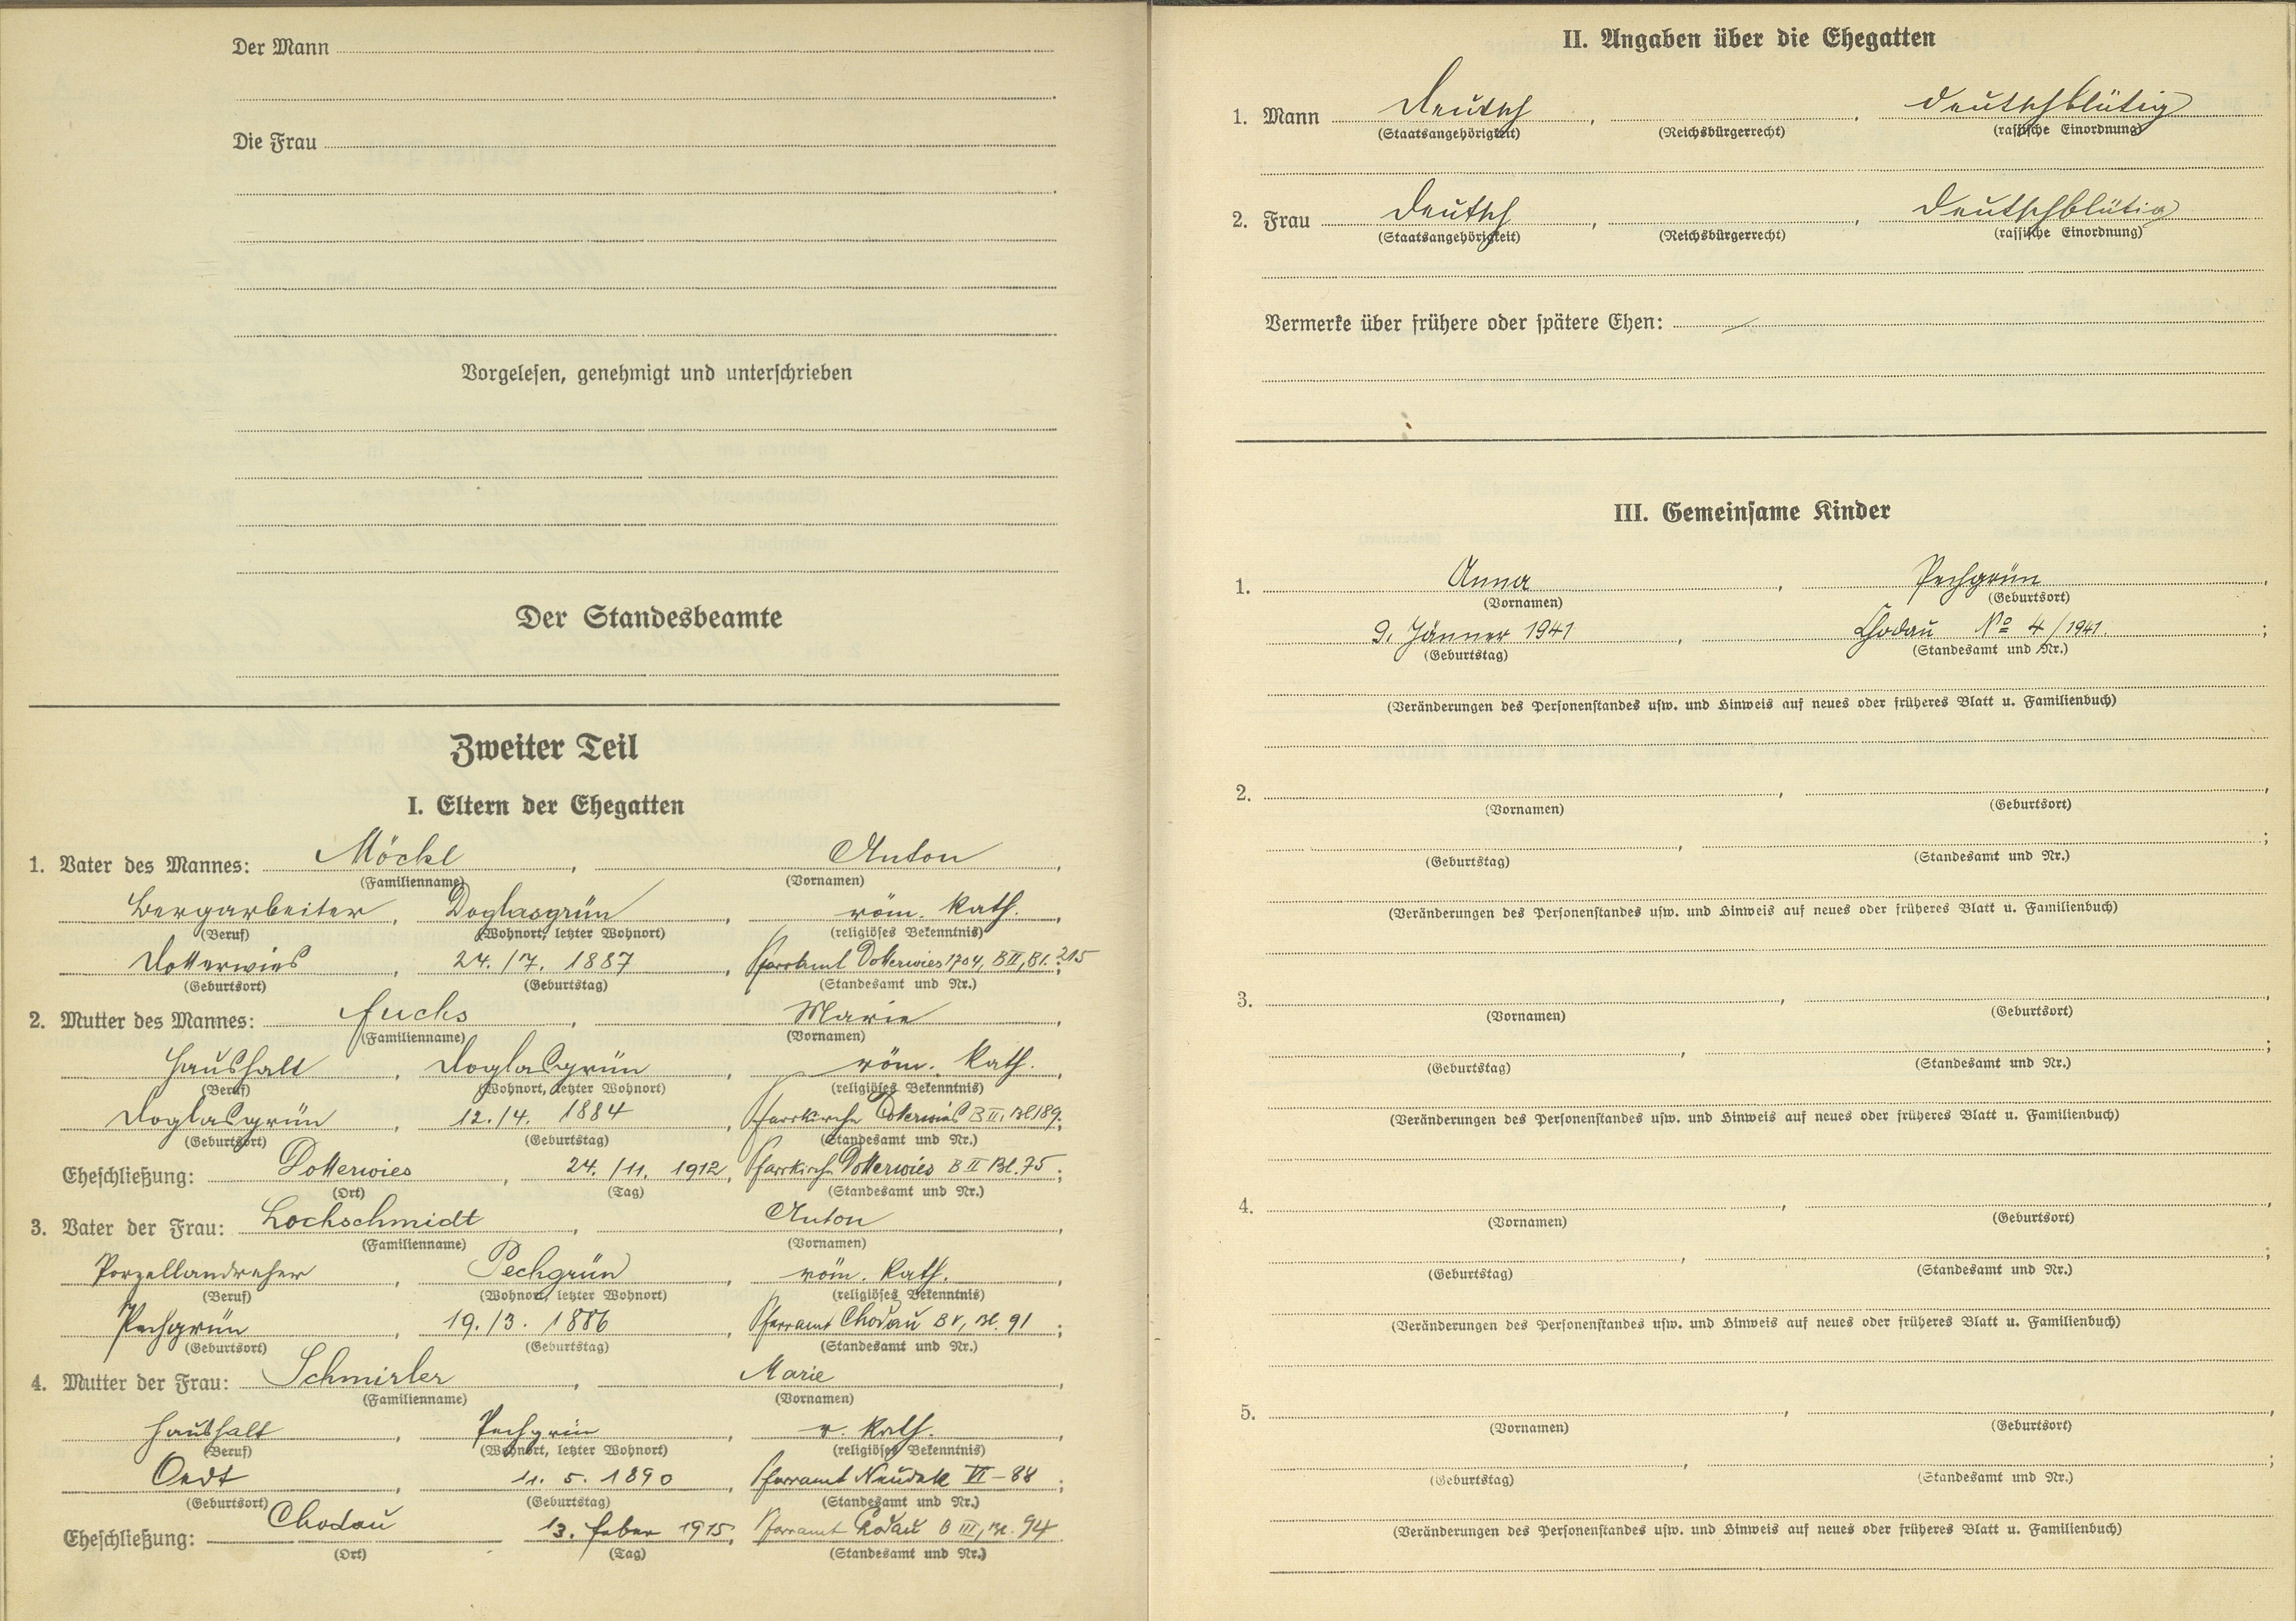 Der Mann
Die Frau
Vorgelesen, genehmigt und unterschrieben
Der Standesbeamte
Zweiter Teil
I. Eltern der Ehegatten
1. Vater des Mannes: Möckl, Anton,
(Familienname) (Vornamen)
Bergarbeiter, Doglasgrün, röm. kath.,
(Beruf) (Wohnort, letzter Wohnort) (religiöses Bekenntnis)
Dotterwies, 24./7. 1887, Pfarramt Dotterwies 1704, B II, Bl. 215;
(Geburtsort) (Geburtstag) (Standesamt und Nr.)
2. Mutter des Mannes: Fuchs, Marie,
(Familienname) (Vornamen)
Haushalt, Doglasgrün, röm. kath.,
(Beruf) (Wohnort, letzter Wohnort) (religiöses Bekenntnis)
Doglasgrün, 12./4. 1884, Pfarrkirche Dotterwies B II. Bl 189;
(Geburtsort) (Geburtstag) (Standesamt und Nr.)
Eheschließung: Dotterwies, 24./11. 1912, Pfarrkirche Dotterwies B II Bl. 75;
(Ort) (Tag) (Standesamt und Nr.)
3. Vater der Frau: Lochschmidt, Anton,
(Familienname) (Vornamen)
Porzellandreher, Pechgrün, röm. kath.,
(Beruf) (Wohnort, letzter Wohnort) (religiöses Bekenntnis)
Pechgrün, 19./3. 1886, Pfarramt Chodau B V, Bl. 91;
(Geburtsort) (Geburtstag) (Standesamt und Nr.)
4. Mutter der Frau: Schmirler, Marie,
(Familienname) (Vornamen)
Haushalt, Pechgrün, r. kath.,
(Beruf) (Wohnort, letzter Wohnort) (religiöses Bekenntnis)
Oedt, 5. 1890, Pfarramt Neudek VI - 88;
(Geburtsort) (Geburtstag) (Standesamt und Nr.)
Eheschließung: Chodau 13. Feber 1915, Pfarramt Chodau B III, Bl. 94
(Ort) (Tag) (Standesamt und Nr.)
II. Angaben über die Ehegatten
1. Mann Deutsch, , deutschblütig
(Staatsangehörigkeit) (Reichsbürgerrecht) (rassische Einordnung)
2. Frau Deutsch, , Deutschblütig
(Staatsangehörigkeit) (Reichsbürgerrecht) (rassische Einordnung)
Vermerke über frühere oder spätere Ehen: —
III. Gemeinsame Kinder
1. Anna, Pechgrün,
(Vornamen) (Geburtsort)
9. Jänner 1941, Chodau No 4/1941.;
(Geburtstag) (Standesamt und Nr.)
(Veränderungen des Personenstandes usw. und Hinweis auf neues oder früheres Blatt u. Familienbuch)
2. , ,
(Vornamen) (Geburtsort)
, ;
(Geburtstag) (Standesamt und Nr.)
(Veränderungen des Personenstandes usw. und Hinweis auf neues oder früheres Blatt u. Familienbuch)
3. , ,
(Vornamen) (Geburtsort)
, ;
(Geburtstag) (Standesamt und Nr.)
(Veränderungen des Personenstandes usw. und Hinweis auf neues oder früheres Blatt u. Familienbuch)
4. , ,
(Vornamen) (Geburtsort)
, ;
(Geburtstag) (Standesamt und Nr.)
(Veränderungen des Personenstandes usw. und Hinweis auf neues oder früheres Blatt u. Familienbuch)
5. , ,
(Vornamen) (Geburtsort)
, ;
(Geburtstag) (Standesamt und Nr.)
(Veränderungen des Personenstandes usw. und Hinweis auf neues oder früheres Blatt u. Familienbuch)